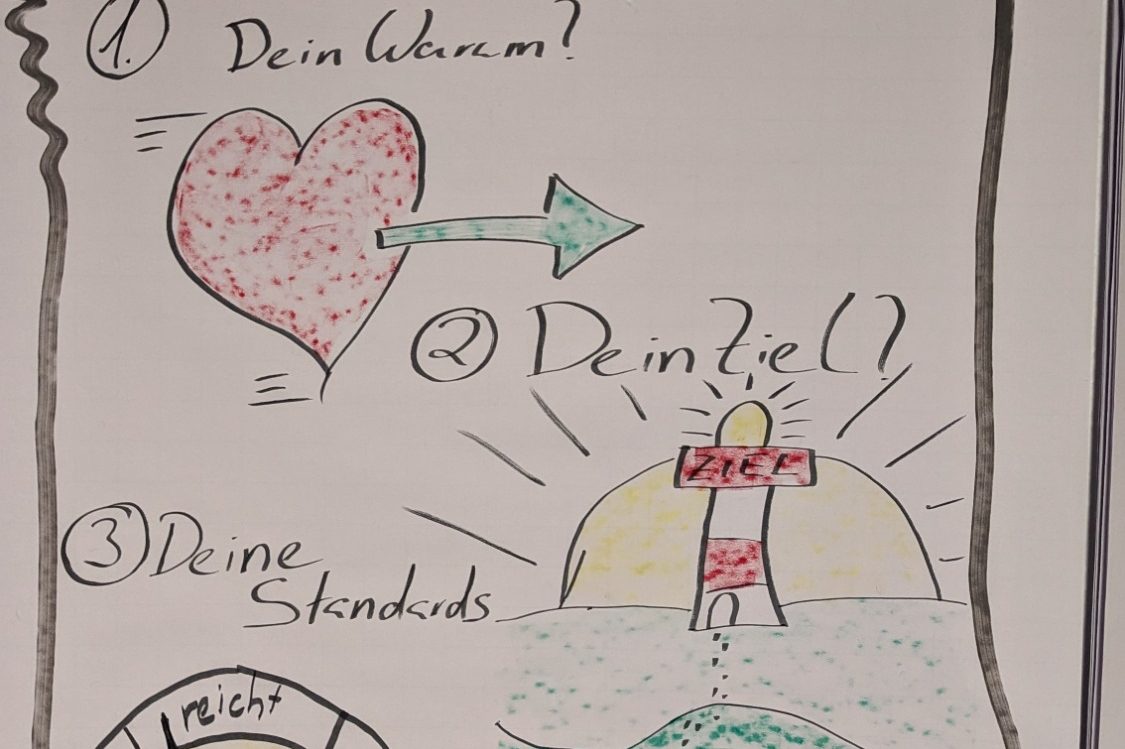 1. Dein Warum?
2 Dein Ziel?
ZIEL
3 Deine
Standards
reicht